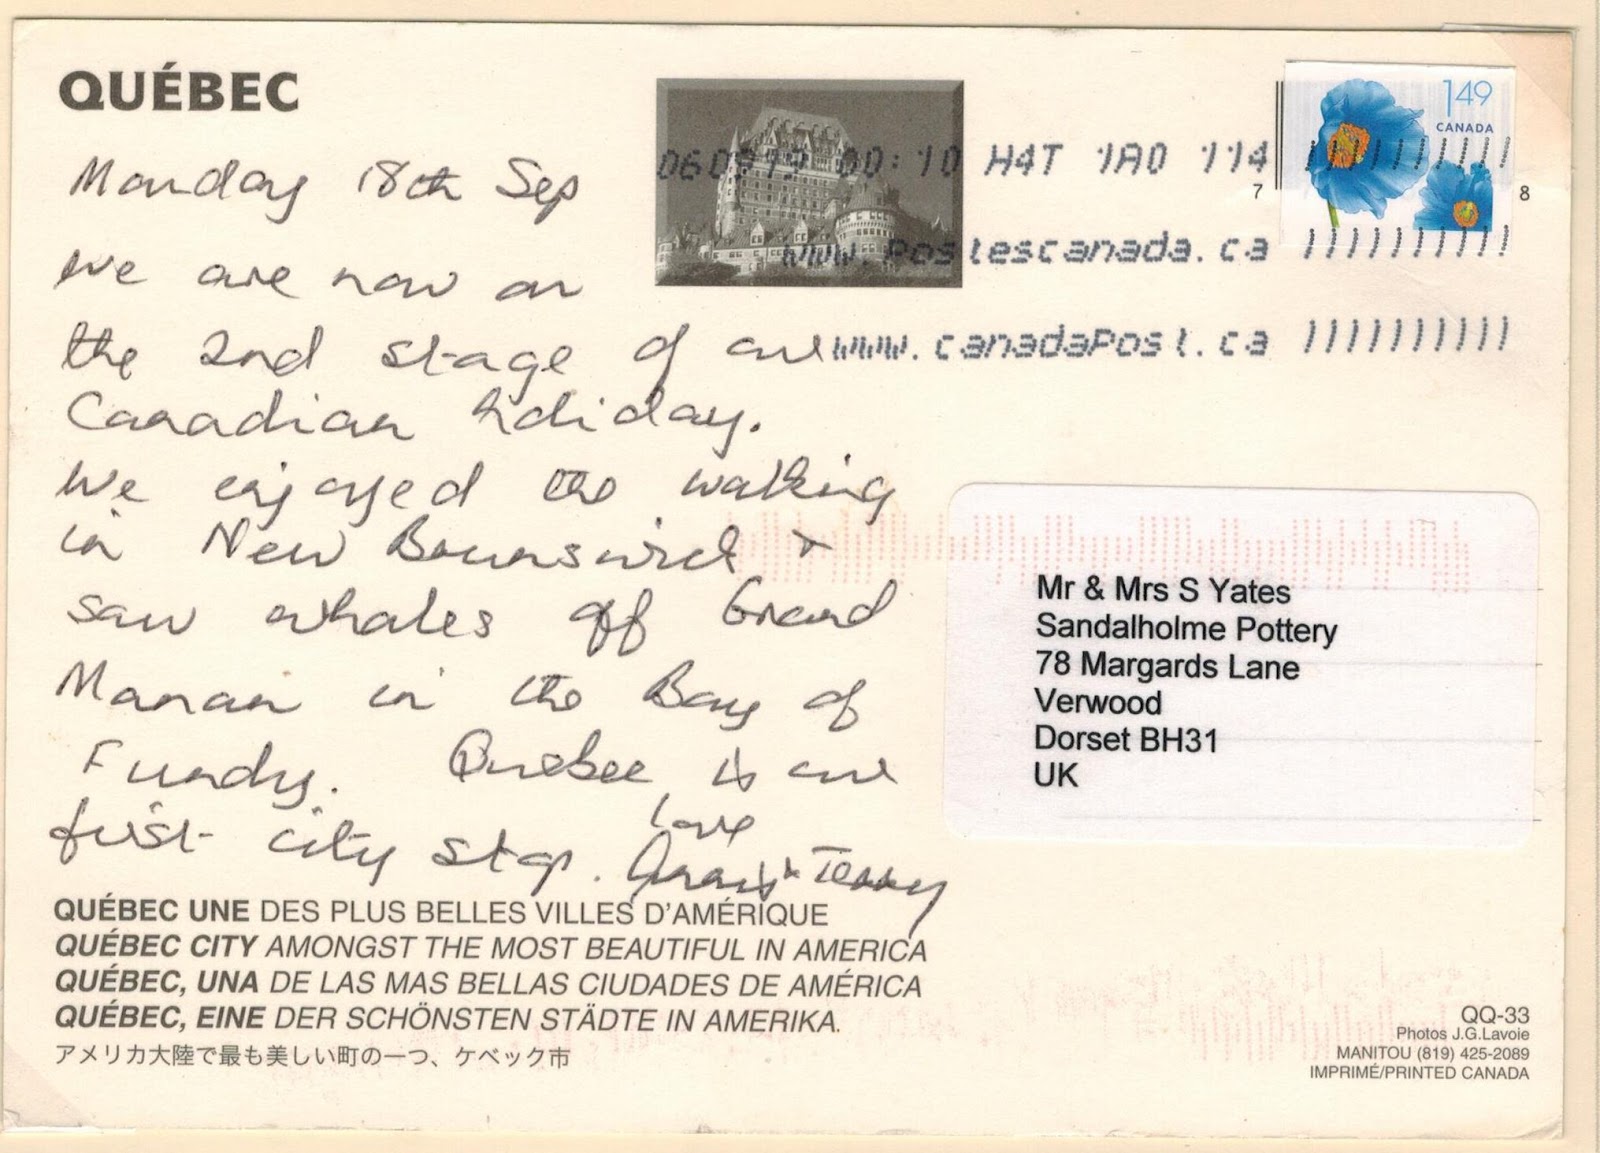 QUÉBEC
Monday 18th Sep
We are now on
the 2nd stage of our
Canadian holiday.
We enjoyed the walking
in New Brunswick +
saw whales off Grand
Manan in the Bay of
Fundy. Quebec is our
first city stop.
love
+ Terry
060919 00:10 H4T 1A0 114
www.postescanada.ca
www.canadaPost.ca
1.49
CANADA
7
8
Mr & Mrs S Yates
Sandalholme Pottery
78 Margards Lane
Verwood
Dorset BH31
UK
QUÉBEC UNE DES PLUS BELLES VILLES D'AMÉRIQUE
QUÉBEC CITY AMONGST THE MOST BEAUTIFUL IN AMERICA
QUÉBEC, UNA DE LAS MAS BELLAS CIUDADES DE AMÉRICA
QUÉBEC, EINE DER SCHÖNSTEN STÄDTE IN AMERIKA.
アメリカ大陸で最も美しい町の一つ、ケベック市
QQ-33
Photos J.G.Lavoie
MANITOU (819) 425-2089
IMPRIMÉ/PRINTED CANADA